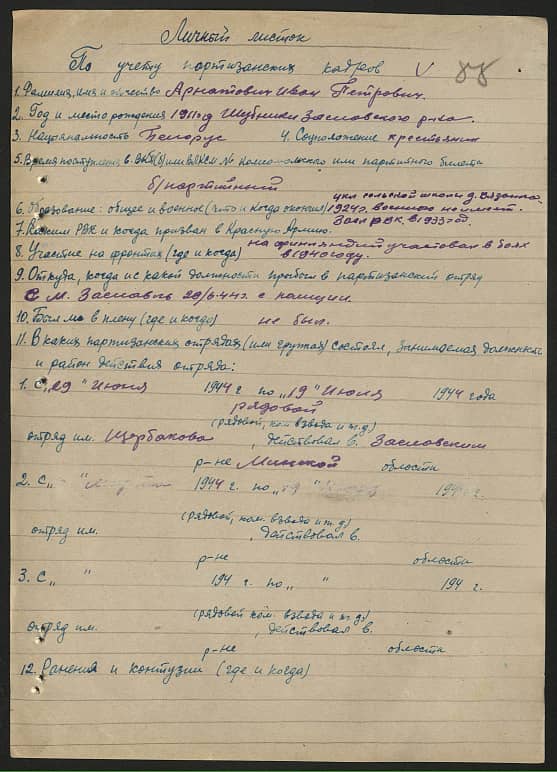 Личный листок
По учету партизанских кадров V 88
1. Фамилия, имя и отчество Арнатович Иван Петрович.
2. Год и место рождения 1911 год Шубники Заславского р-на.
3. Национальность Белорус 4. Соцположение крестьянин
5. Время поступлен. в ВКП(б) или ВЛКСМ № комсомольского или партийного билета
б/партийный
6. Образование: общее и военное (что и когда окончил) 4 кл сельской школы д.
1924г. военного не имеет.
7. Каким РВК и когда призван в Красную Армию. Засл РВК в 1933 год.
8. Участие на фронтах (где и когда) на финляндий участвовал в боях
в 1940 году.
9. Откуда, когда и с какой должности прибыл в партизанский отряд
С м. Заславль 29/6-44 г. с полиции.
10. Был ли в плену (где и когда) не был.
11. В каких партизанских отрядах (или группах) состоял, занимаемая должность
и район действия отряда:
1. С „29" Июня 1944 г по „19" Июля 1944 года
рядовой
(рядовой, ком взвода и т.д)
отряд им. Щербакова, действовал в. Заславским
р-не Минской области
2. С „ " 1944 г. по „19" 194 г.
(рядовой, ком. взвода и т.д)
отряд им. , действовал в.
р-не области
3. С „ " 194 г. по „ " 194 г.
(рядовой ком. взвода и т.д)
отряд им. , действовал в.
р-не области
12. Ранения и контузии (где и когда)